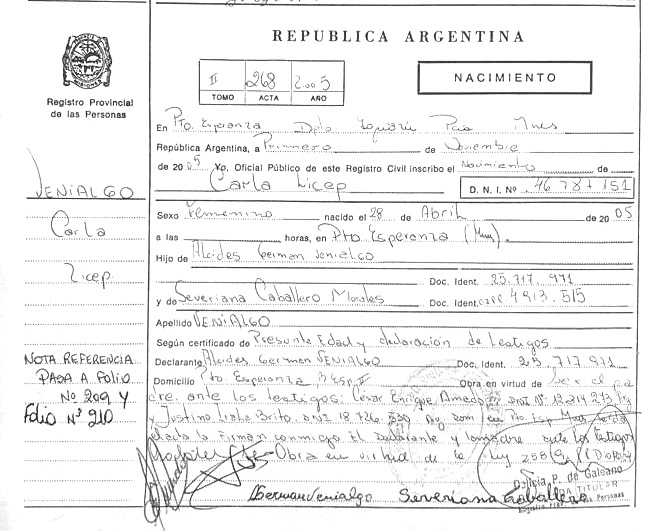 REPUBLICA ARGENTINA
II 268 2005
TOMO ACTA AÑO
NACIMIENTO
Registro Provincial
de las Personas
VENIALGO
Carla
Licep
NOTA REFERENCIA
PASA A FOLIO
Nº 209 Y
Folio Nº 210
En Pto. Esperanza Dpto Iguazú Pcia Mnes
República Argentina, a Primero de Noviembre
de 2005 Yo, Oficial Público de este Registro Civil inscribo el Nacimiento de
Carla Licep D. N. I. Nº 46 787 151
Sexo Femenino nacido el 28 de Abril de 2005
a las horas, en Pto Esperanza (Mnes).
Hijo de Alcides German Venialgo
Doc. Ident. 25.717.971
y de Severiana Caballero Morales Doc. Ident. 4813.515
Apellido VENIALGO
Según certificado de Presunta Edad y declaración de testigos
Declarante Alcides German VENIALGO Doc. Ident. 25 717 971
Domicilio Pto Esperanza Obra en virtud de Ser el pa
dre. ante los testigos: Cesar Enrique DNI Nº 12.214.213
y Justino Brito. DNI 18.726. dom en Pto Esp Mnes
la Firman conmigo El Declarante y la madre ante los testigos
Obra en virtud de la Ley
Delicia P. de Galeano
TITULAR
Registro Prov. de las Personas
German Venialgo Severiana Caballero